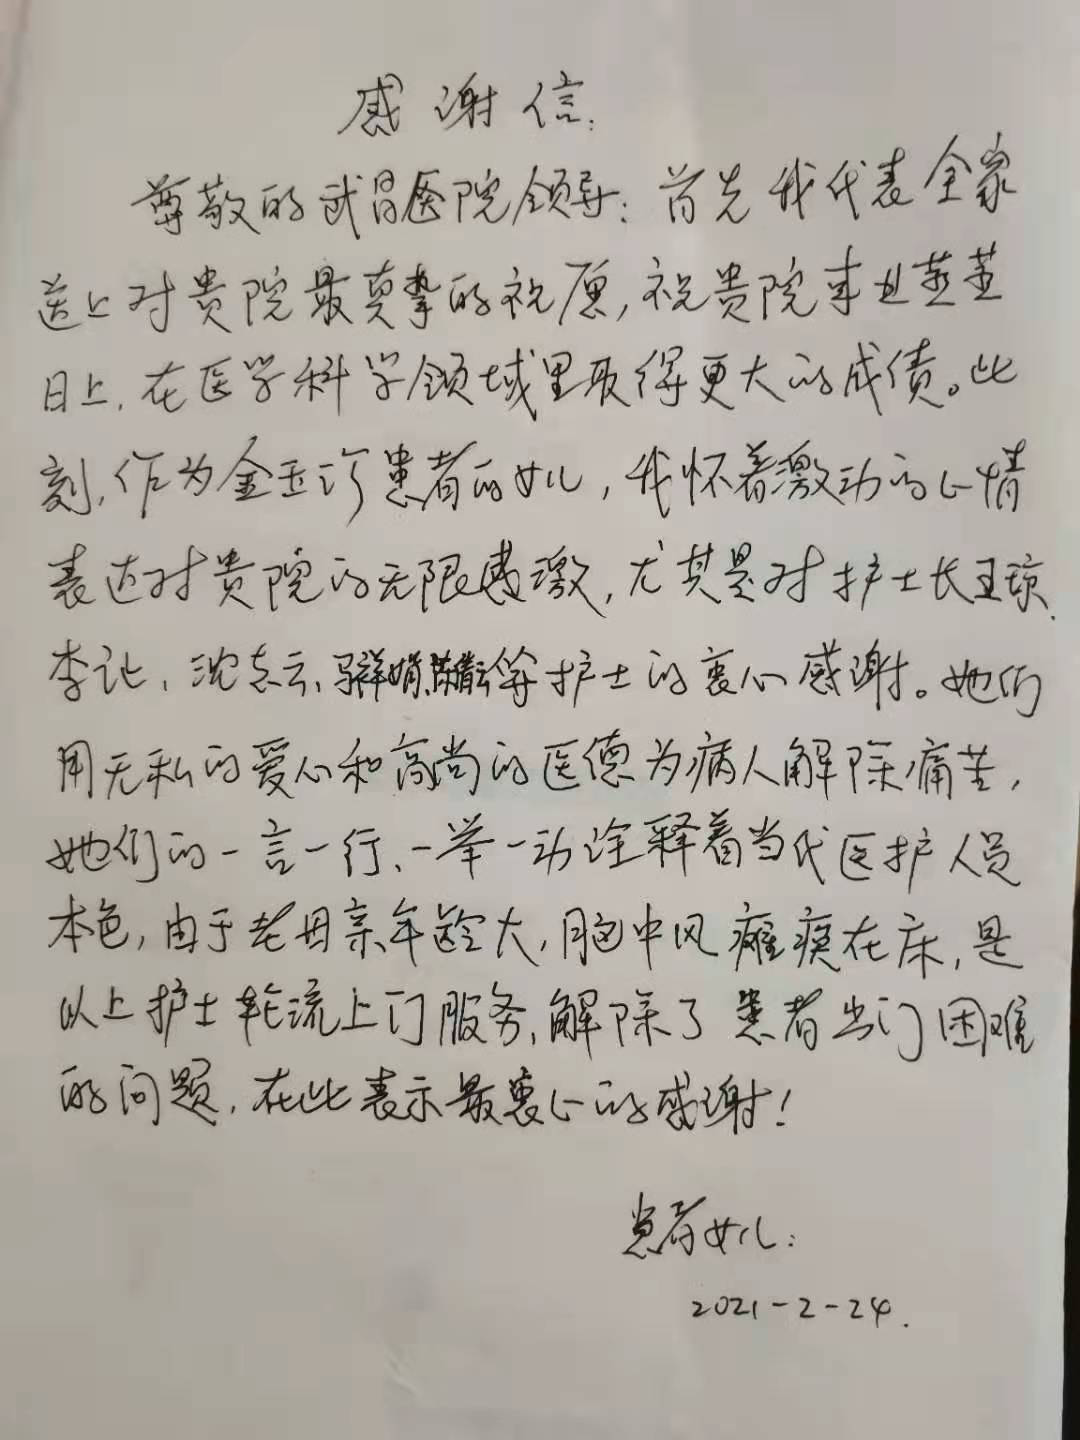 感谢信:
尊敬的武昌医院领导：首先我代表全家
送上对贵院最真挚的祝愿，祝贵院事业蒸蒸
日上，在医学科学领域里取得更大的成绩。此
刻，作为金玉珍患者的女儿，我怀着激动的心情
表达对贵院的无限感激，尤其是对护士长王琼、
李记、沈志云、马祥娟、等护士的衷心感谢。她们
用无私的爱心和高尚的医德为病人解除痛苦，
她们的一言一行、一举一动诠释着当代医护人员
本色，由于老母亲年龄大，脑中风瘫痪在床，是
以上护士轮流上门服务，解除了患者出门困难
的问题，在此表示最衷心的感谢！
患者女儿：
2021-2-24.